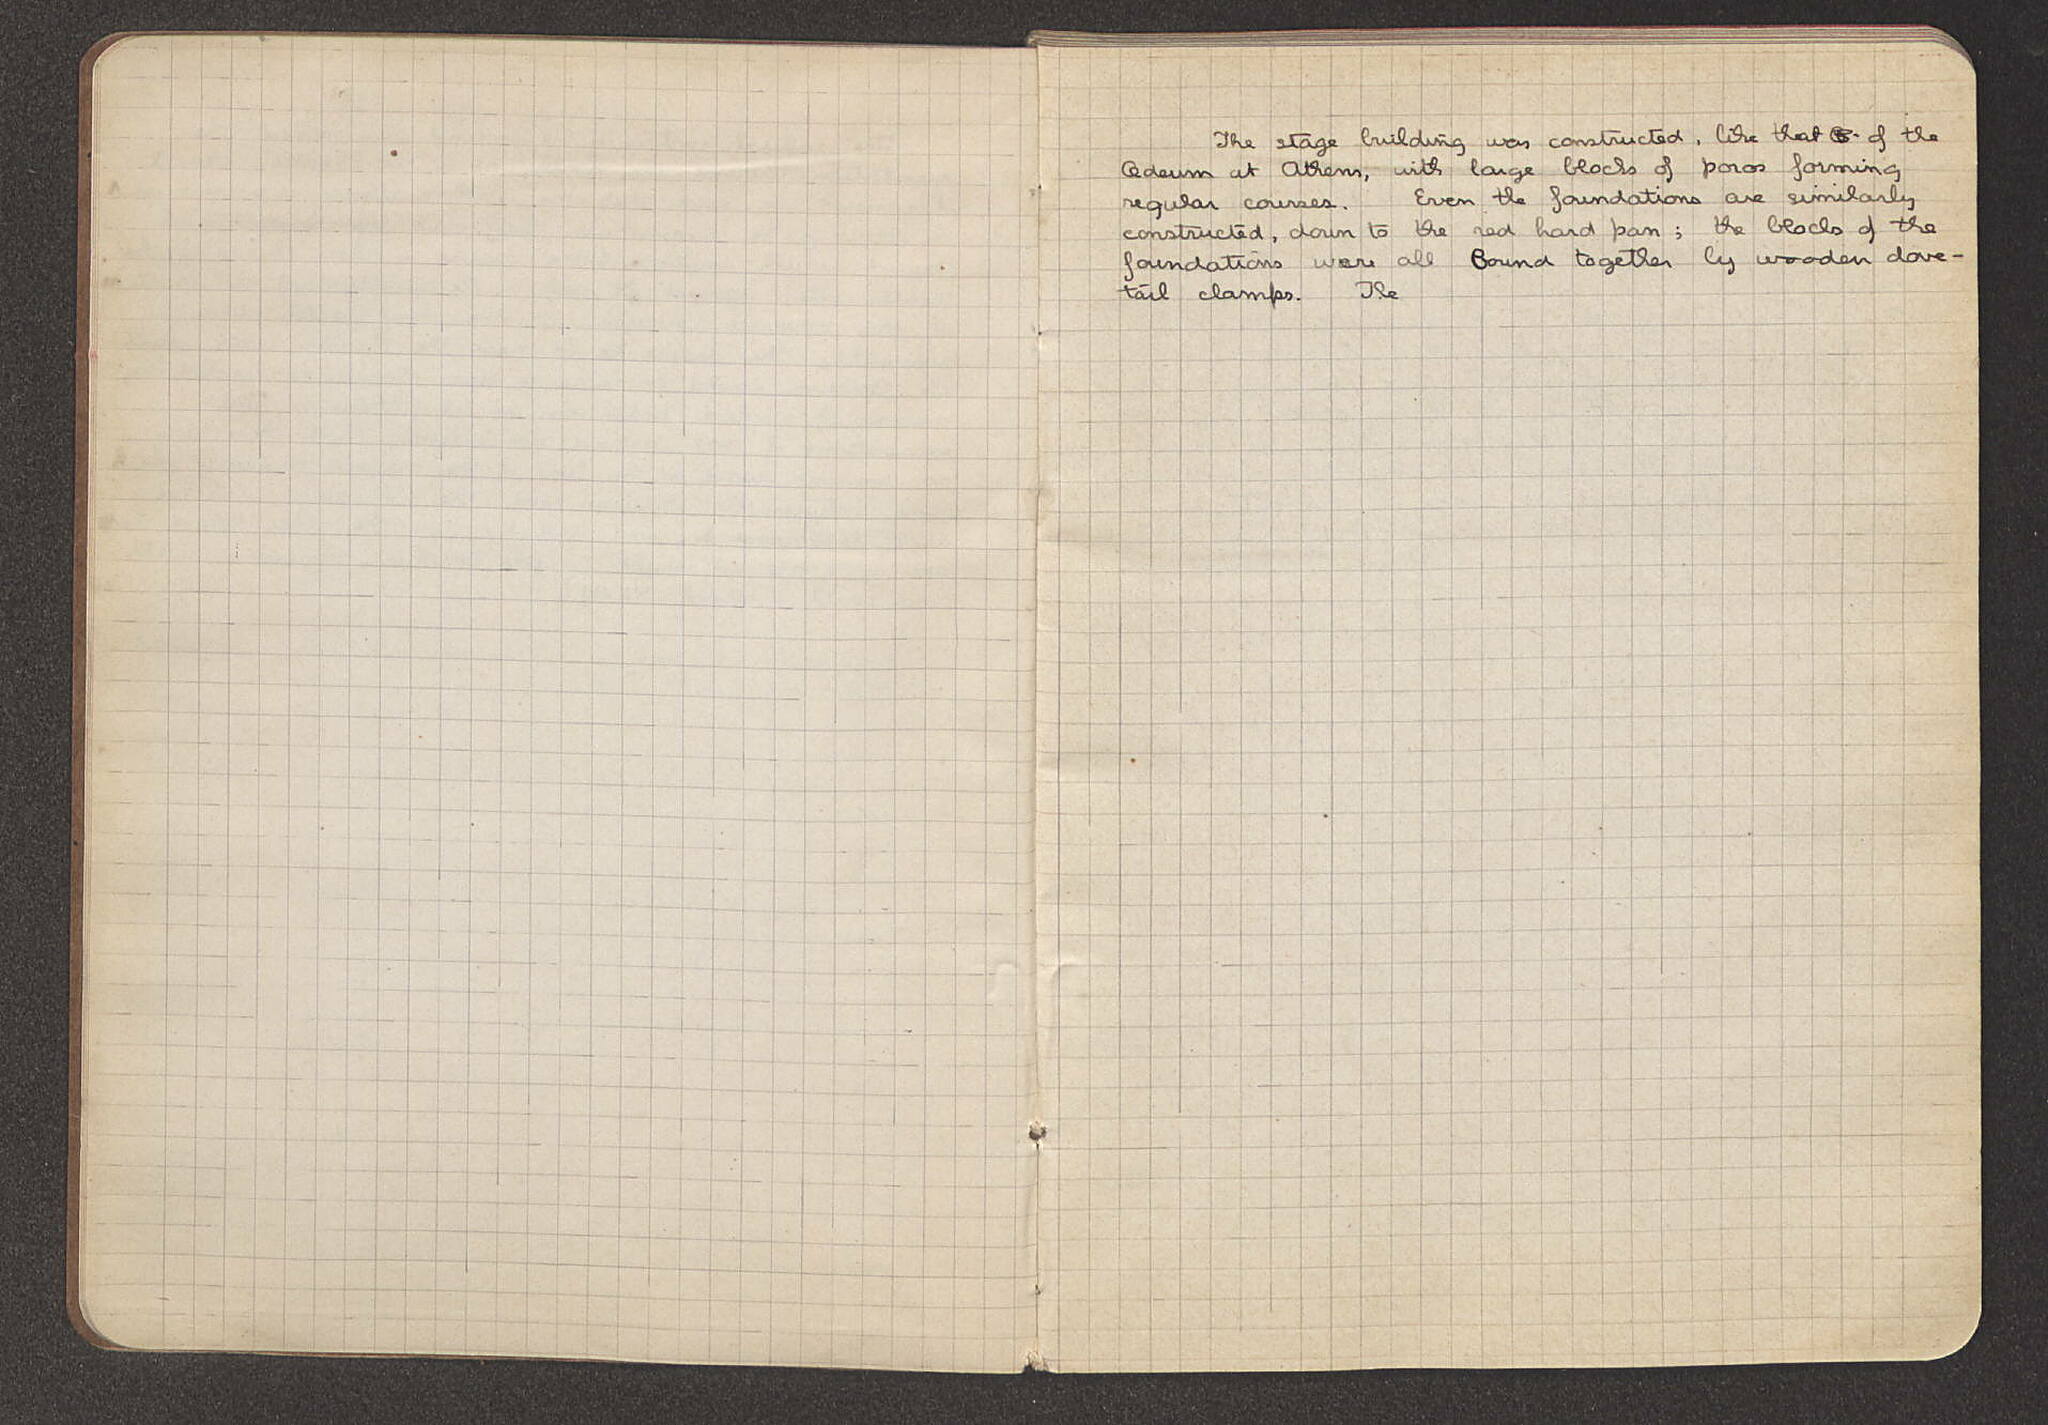 The stage building was constructed, like that of the
Odeum at Athens, with large blocks of poros forming
regular courses. Even the foundations are similarly
constructed, down to the red hard pan; the blocks of the
foundations were all bound together by wooden dove-
tail clamps. The